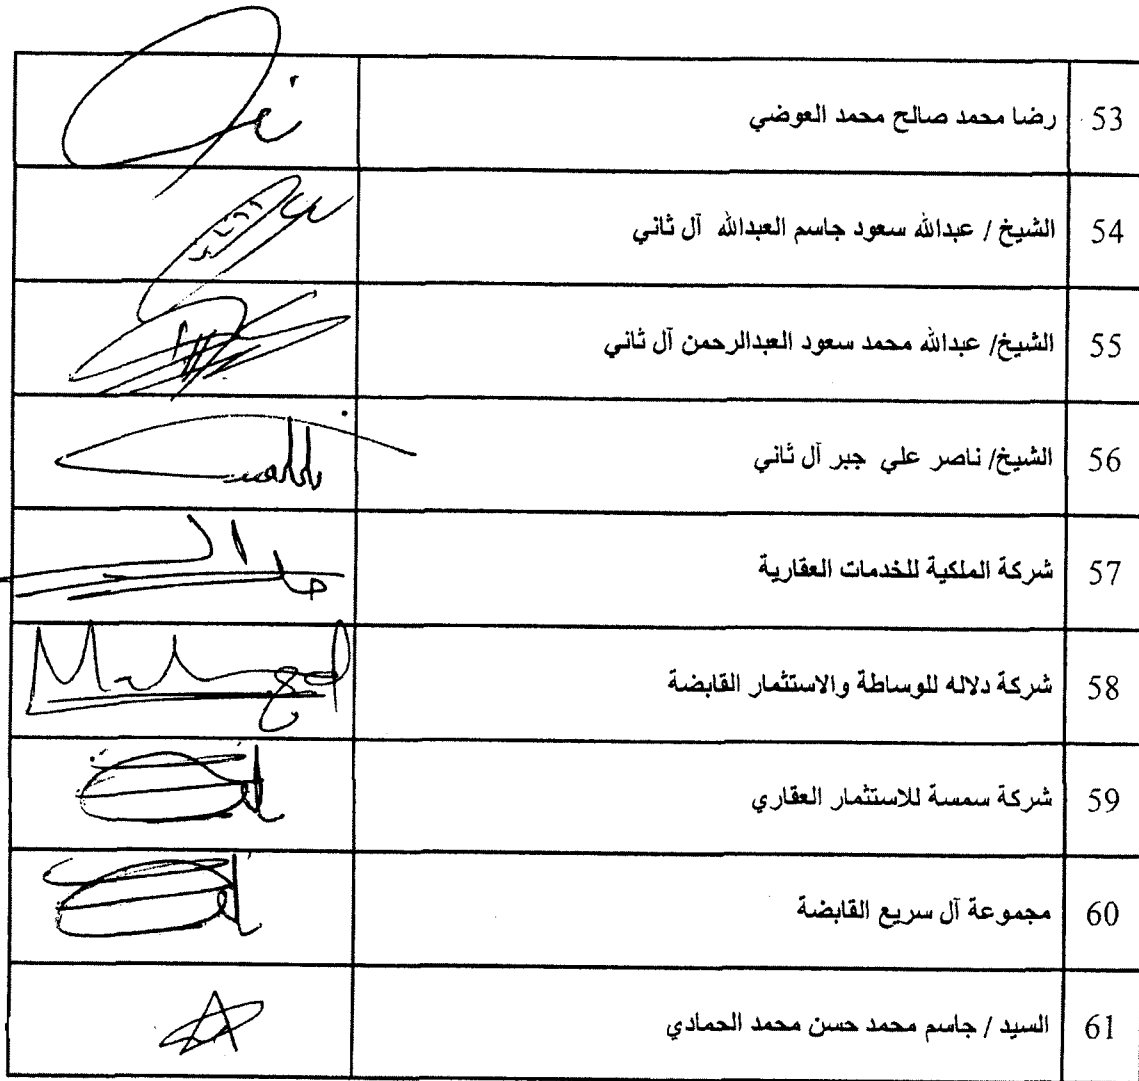 53 رضا محمد صالح محمد العوضي
54 الشيخ / عبدالله سعود جاسم العبدالله آل ثاني
55 الشيخ/ عبدالله محمد سعود العبدالرحمن آل ثاني
56 الشيخ/ ناصر علي جبر آل ثاني
57 شركة الملكية للخدمات العقارية
58 شركة دلاله للوساطة والاستثمار القابضة
59 شركة سمسة للاستثمار العقاري
60 مجموعة آل سريع القابضة
61 السيد / جاسم محمد حسن محمد الحمادي